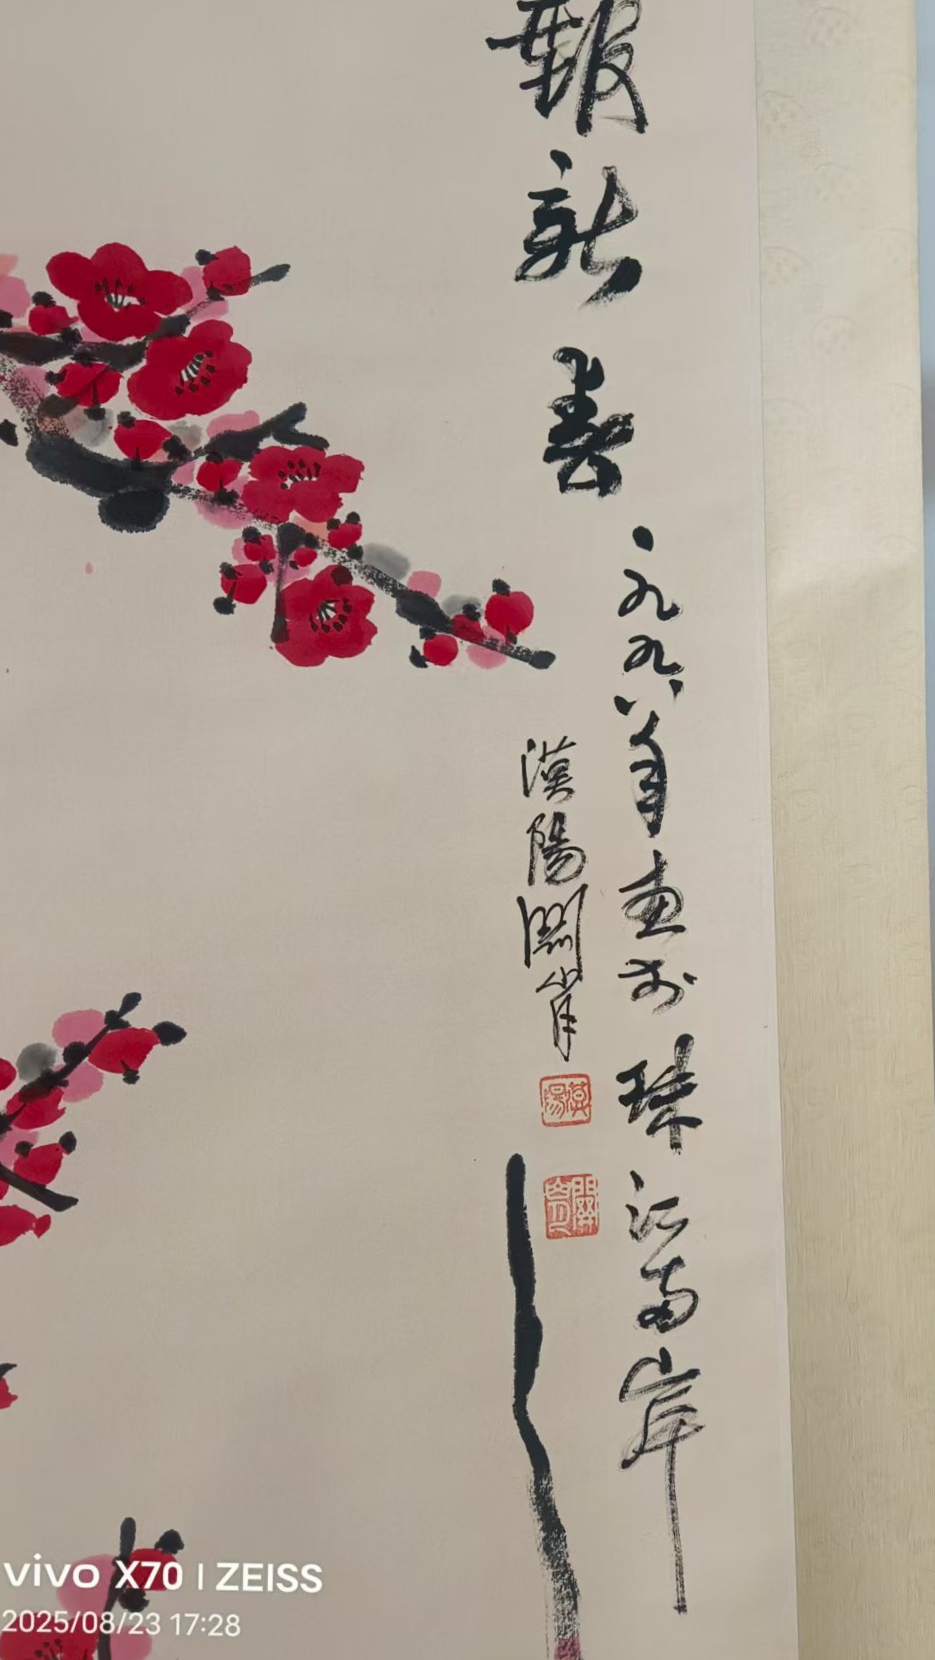 報新春
一九九八年畫於珠江南岸
漠陽關山月
漠陽
關山月
vivo X70 | ZEISS
2025/08/23 17:28